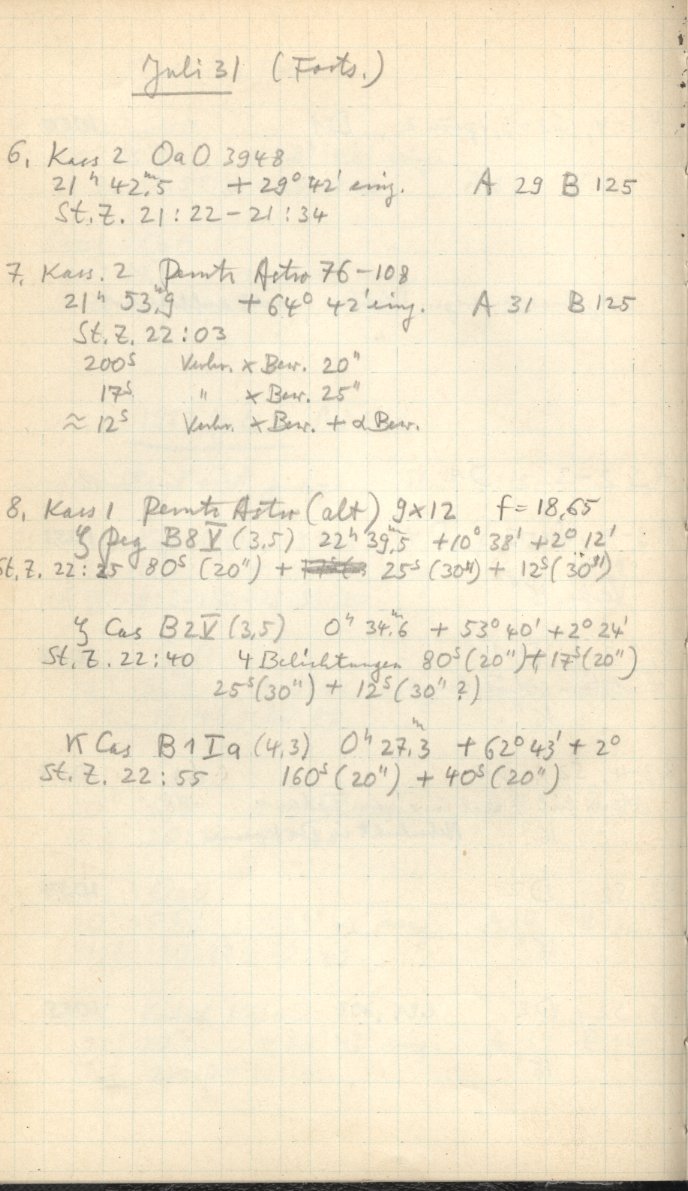 Juli 31 (Forts.)
6, Kass 2 OaO 3948
21ʰ 42ᵐ,5 + 29° 42' eing. A 29 B 125
St.Z. 21:22 – 21:34
7. Kass. 2 Perutz Astro 76–108
21ʰ 53ᵐ,9 + 64° 42' eing. A 31 B 125
St.Z. 22:03
200ˢ Verbr. x Bew. 20"
17ˢ " x Bew. 25"
≈ 12ˢ Verbr. x Bew. + α Bew.
8, Kass 1 Perutz Astro (alt) 9x12 f = 18,65
ζ Peg B8V (3,5) 22ʰ 39ᵐ,5 +10° 38' +2° 12'
St.Z. 22:25 80ˢ (20") + 25ˢ (30") + 12ˢ (30")
ζ Cas B2V (3,5) 0ʰ 34ᵐ,6 + 53° 40' +2° 24'
St.Z. 22:40 4 Belichtungen 80ˢ (20") + 17ˢ (20")
25ˢ (30") + 12ˢ (30" ?)
κ Cas B1Ia (4,3) 0ʰ 27ᵐ,3 + 62° 43' + 2°
St.Z. 22:55 160ˢ (20") + 40ˢ (20")